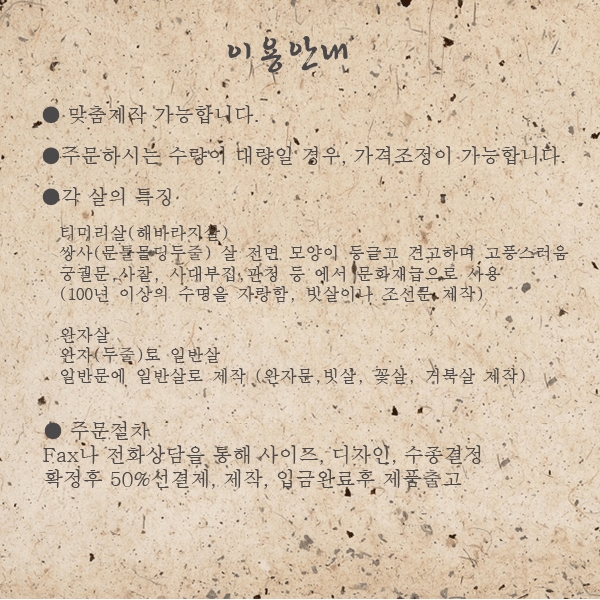 이용안내
● 맞춤제작 가능합니다.
●주문하시는 수량이 대량일 경우, 가격조정이 가능합니다.
●각 살의 특징
티미리살(해바라지살)
쌍사(문틀몰딩두줄) 살 전면 모양이 둥글고 견고하며 고풍스러움
궁궐문,사찰, 사대부집,관정 등 에서 문화재급으로 사용
(100년 이상의 수명을 자랑함, 빗살이나 조선문 제작)
완자살
완자(두줄)로 일반살
일반문에 일반살로 제작 (완자문,빗살, 꽃살, 거북살 제작)
● 주문절차
Fax나 전화상담을 통해 사이즈, 디자인, 수종결정
확정후 50%선결제, 제작, 입금완료후 제품출고